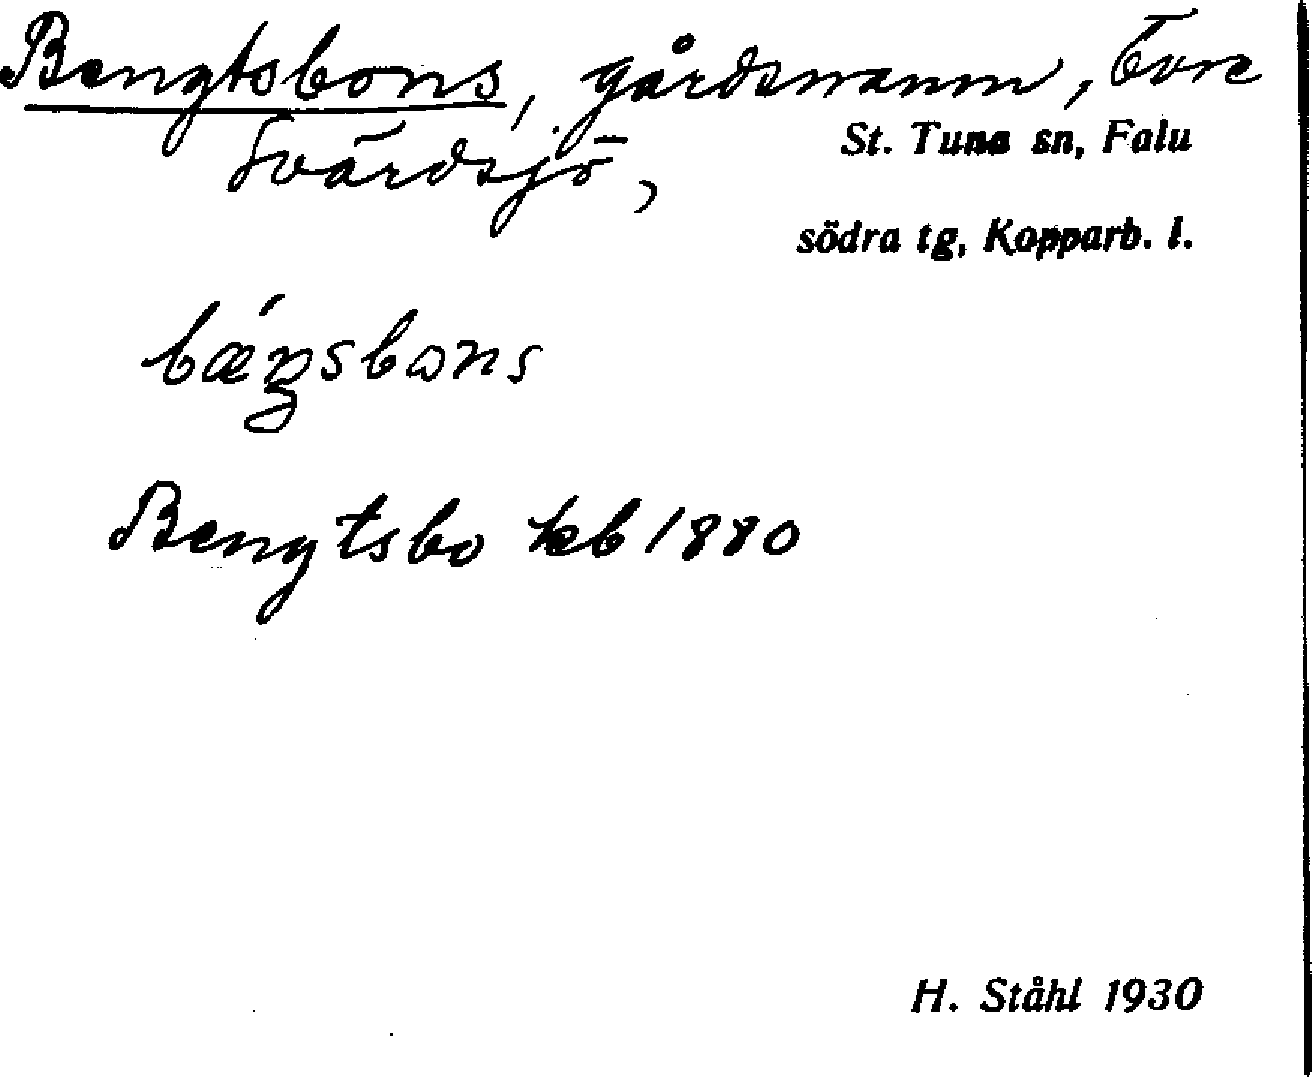 Bengtsbons, gårdsnamn, Övre
Svärdsjö,
St. Tuna sn, Falu
södra tg, Kopparb. l.
bæŋsbons
Bengtsbo kb 1880
H. Ståhl 1930